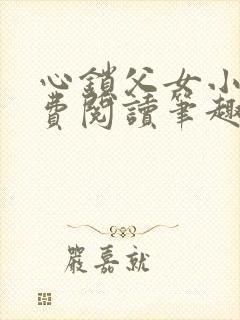 心鎖父女小
費閱讀筆趣
嚴嘉就